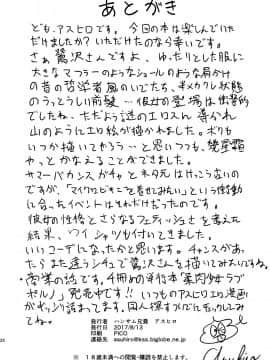 あとがき
ども、アスヒロです。今回の本は楽しんでいた
だけましたか？いただけたのなら幸いです。
さぁ鷺沢さんですよ、ゆったりとした服に
大きなマフラーのようなショールのような肩かけ
の昔の哲学者風のいでたち、半メクレ状態
のうっとうしい前髪…彼女の登場は衝撃的
でしたね、ただよう謎のエロスに導かれ
山のようにエロ絵が描かれました。ボクも
いつか描いてやろう…と思いつつも、幾星霜
やっとかなえることができました。
サマーバカンスガチャとネタ元はけっこう古いの
ですが、「マイクロビキニを着せてみたい」という衝動
に合ったイベントはそれだけだったのです。
彼女の性格とさらなるフェティッシュさを考えた
結果、ワイシャツも付いてきました。
いいコーデになったかと思います。チャンスがあっ
たらまた違うシチュで鷺沢さんを描いてみたいですね。
商業の話です。4冊めの単行本「案内少女ラブ
ポルノ」発売中です!!いつものアスヒロエロ漫画
がギッシリ詰まってます。図太探すついでにチェックしてみ
てね。
発行者 ハンサム社員 アスヒロ
発行日 2017/8/13
印刷 PICO
連絡先 asuhiro@kss.biglobe.ne.jp
※18歳未満への閲覧・購読を禁止します。